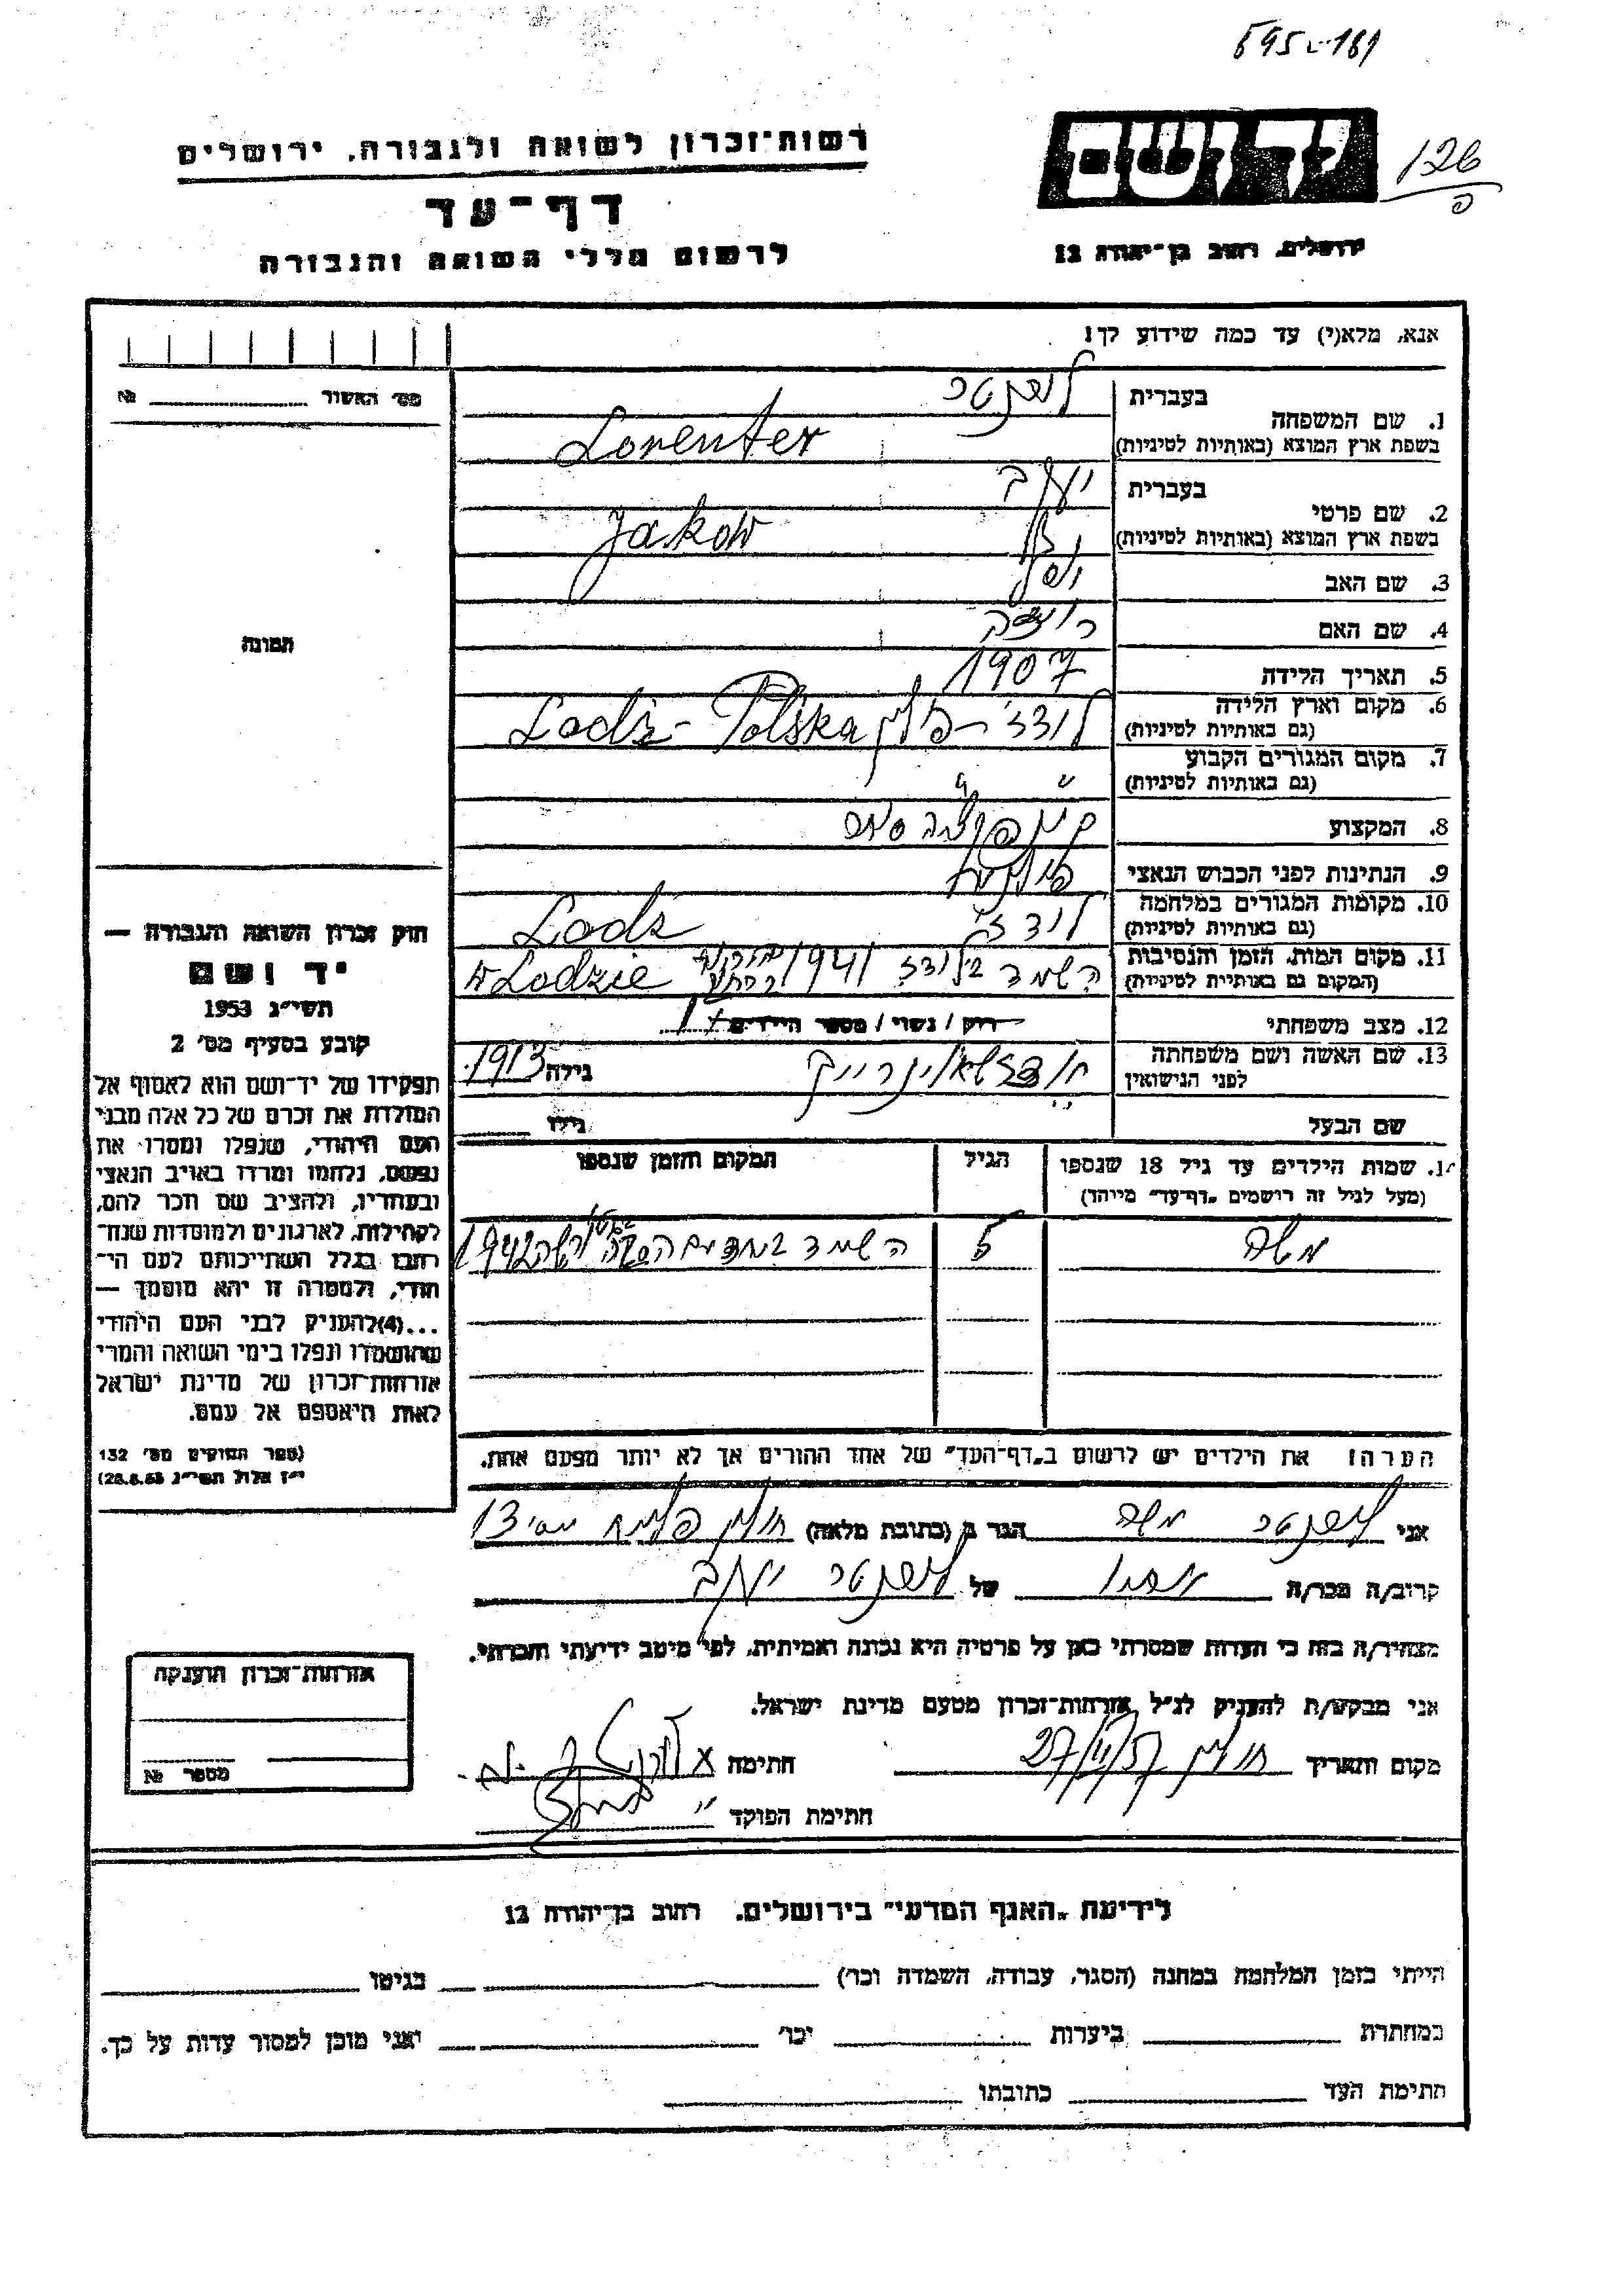 695-181
יד ושם
126
פ
רשות-זכרון לשואה ולגבורה, ירושלים
דף-עד
לרשום חללי השואה והגבורה
ירושלים, רחוב בן-יהודה 12
אנא, מלא(י) עד כמה שידוע לך!
מס׳ האשור № 
1. שם המשפחה
בעברית
בשפת ארץ המוצא (באותיות לטיניות) Lorenter
2. שם פרטי
בעברית יעקב
בשפת ארץ המוצא (באותיות לטיניות) Jakow
3. שם האב יוסף
4. שם האם
5. תאריך הלידה 1907
6. מקום וארץ הלידה
(גם באותיות לטיניות) לודז׳ - פולין Lodź - Polska
7. מקום המגורים הקבוע
(גם באותיות לטיניות) " "
8. המקצוע
9. הנתינות לפני הכבוש הנאצי פולנית
10. מקומות המגורים במלחמה
(גם באותיות לטיניות) לודז׳ Lodz
11. מקום המות, הזמן והנסיבות
(המקום גם באותיות לטיניות) השמד בלודז 1941 w Lodzie
12. מצב משפחתי רוק / נשוי / מספר הילדים 1
13. שם האשה ושם משפחתה
לפני הנישואין גילה 1913
שם הבעל גילו
תמונה
14. שמות הילדים עד גיל 18 שנספו
(מעל לגיל זה רושמים "דף-עד" מייהד)
הגיל
המקום והזמן שנספו
משה 5 השמד 1942
הערה! את הילדים יש לרשום ב"דף-העד" של אחד ההורים אך לא יותר מפעם אחת.
חוק זכרון השואה והגבורה —
יד ושם
תשי"ג 1953
קובע בסעיף מס׳ 2
תפקידו של יד-ושם הוא לאסוף אל
המולדת את זכרם של כל אלה מבני
העם היהודי, שנפלו ומסרו את
נפשם, נלחמו ומרדו באויב הנאצי
ובעוזריו, ולהציב שם וזכר להם,
לקהילות, לארגונים ולמוסדות שנח-
רבו בגלל השתייכותם לעם הי-
הודי, ולמטרה זו יהא מוסמך —
...(4) להעניק לבני העם היהודי
שהושמדו ונפלו בימי השואה והמרי
אזרחות-זכרון של מדינת ישראל
לאות היאספם אל עמם.
(ספר החוקים מס׳ 132
י"ז אלול תשי"ג 28.8.53)
אני משה הגר ב (כתובת מלאה) חולון 13
קרוב/ה מכר/ה של יעקב
מצהיר/ה בזה כי העדות שמסרתי כאן על פרטיה היא נכונה ואמיתית, לפי מיטב ידיעתי והכרתי.
אני מבקש/ת להעניק לנ"ל אזרחות-זכרון מטעם מדינת ישראל.
מקום ותאריך חולון 27/VI/57 חתימה
חתימת הפוקד
אזרחות-זכרון הוענקה
מספר №
לידיעת "האגף המדעי" בירושלים. רחוב בן-יהודה 12
הייתי בזמן המלחמה במחנה (הסגר, עבודה, השמדה וכו׳) בגיטו
במחתרת ביערות וכו׳ ואני מוכן למסור עדות על כך.
חתימת העד כתובתו